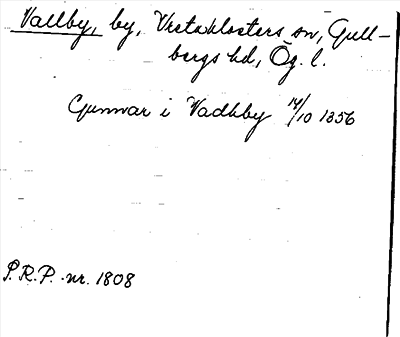 Vallby, by, Vretaklosters sn, Gull-
bergs hd, Ög. l.
Gunnar i Vadhby 14/10 1356
P.R.P. nr. 1808